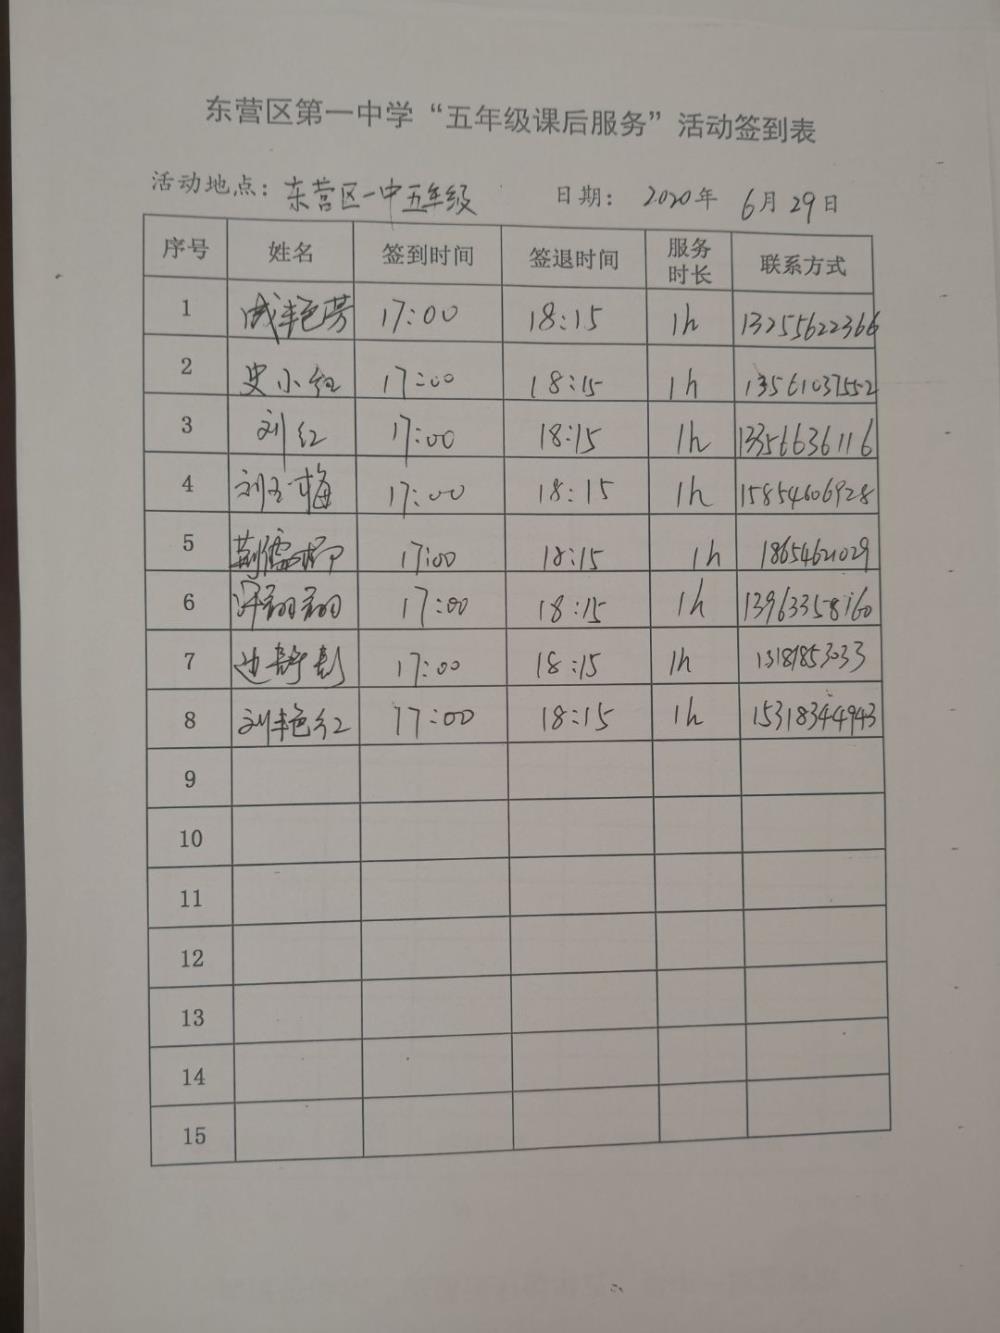 东营区第一中学“五年级课后服务”活动签到表
活动地点：东营区一中五年级 日期： 2020年 6月29日
序号 姓名 签到时间 签退时间 服务时长 联系方式
1 成艳芳 17:00 18:15 1h 13255622366
2 史小红 17:00 18:15 1h 13561037552
3 刘红 17:00 18:15 1h 13356636116
4 刘玉梅 17:00 18:15 1h 15854606928
5 17:00 18:15 1h 18654621029
6 翔翔 17:00 18:15 1h 13963358160
7 边静彭 17:00 18:15 1h 13187853033
8 刘艳红 17:00 18:15 1h 15318344943
9
10
11
12
13
14
15